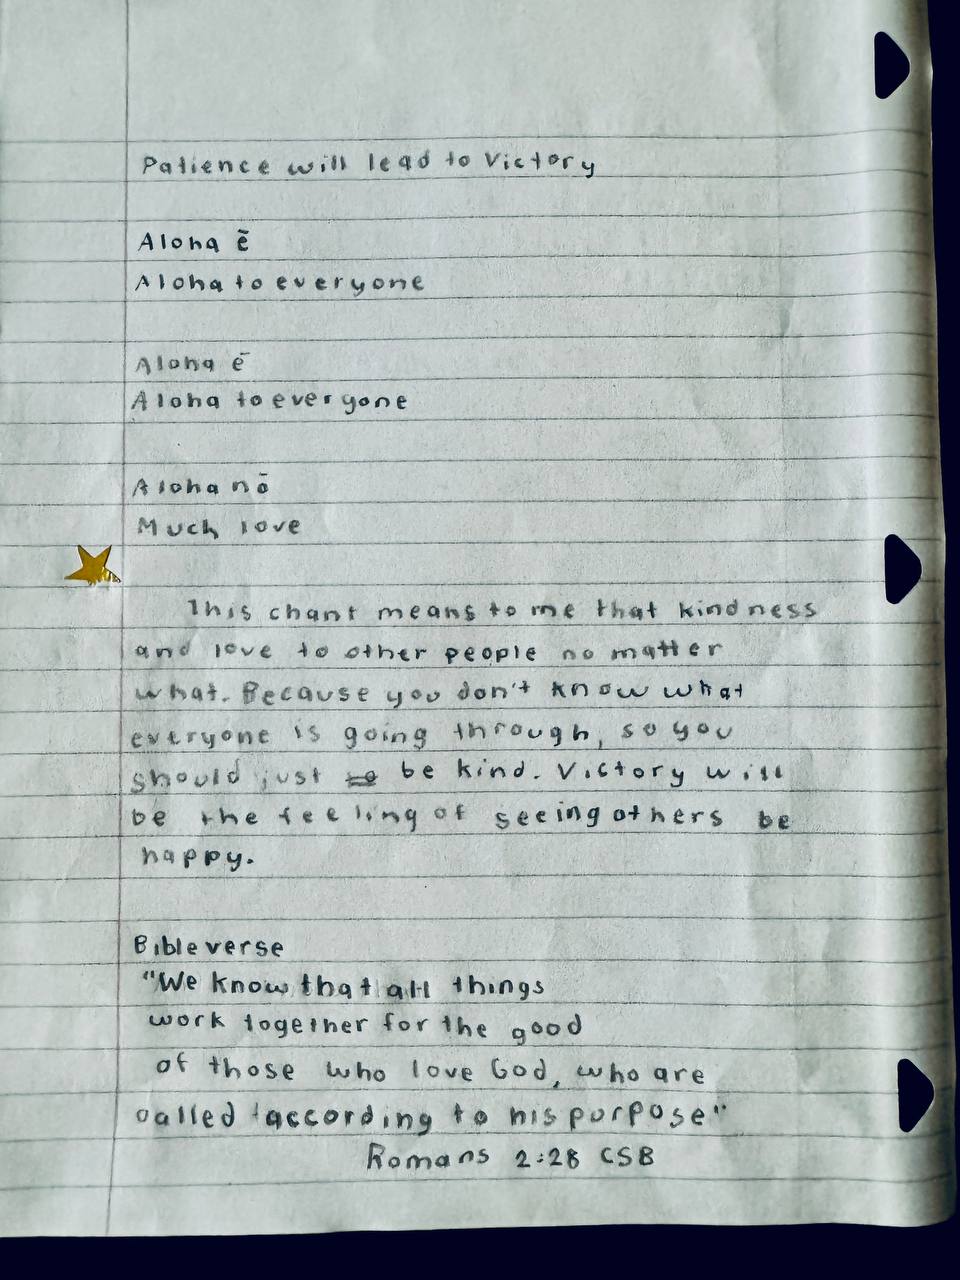 Patience will lead to Victory
Aloha ē
Aloha to everyone
Aloha ē
Aloha to everyone
Aloha nō
Much love
This chant means to me that kindness
and love to other people no matter
what. Because you don't know what
everyone is going through, so you
should just be kind. Victory will
be the feeling of seeing others be
happy.
Bible verse
"We know that all things
work together for the good
of those who love God, who are
called according to his purpose"
Romans 2:28 CSB